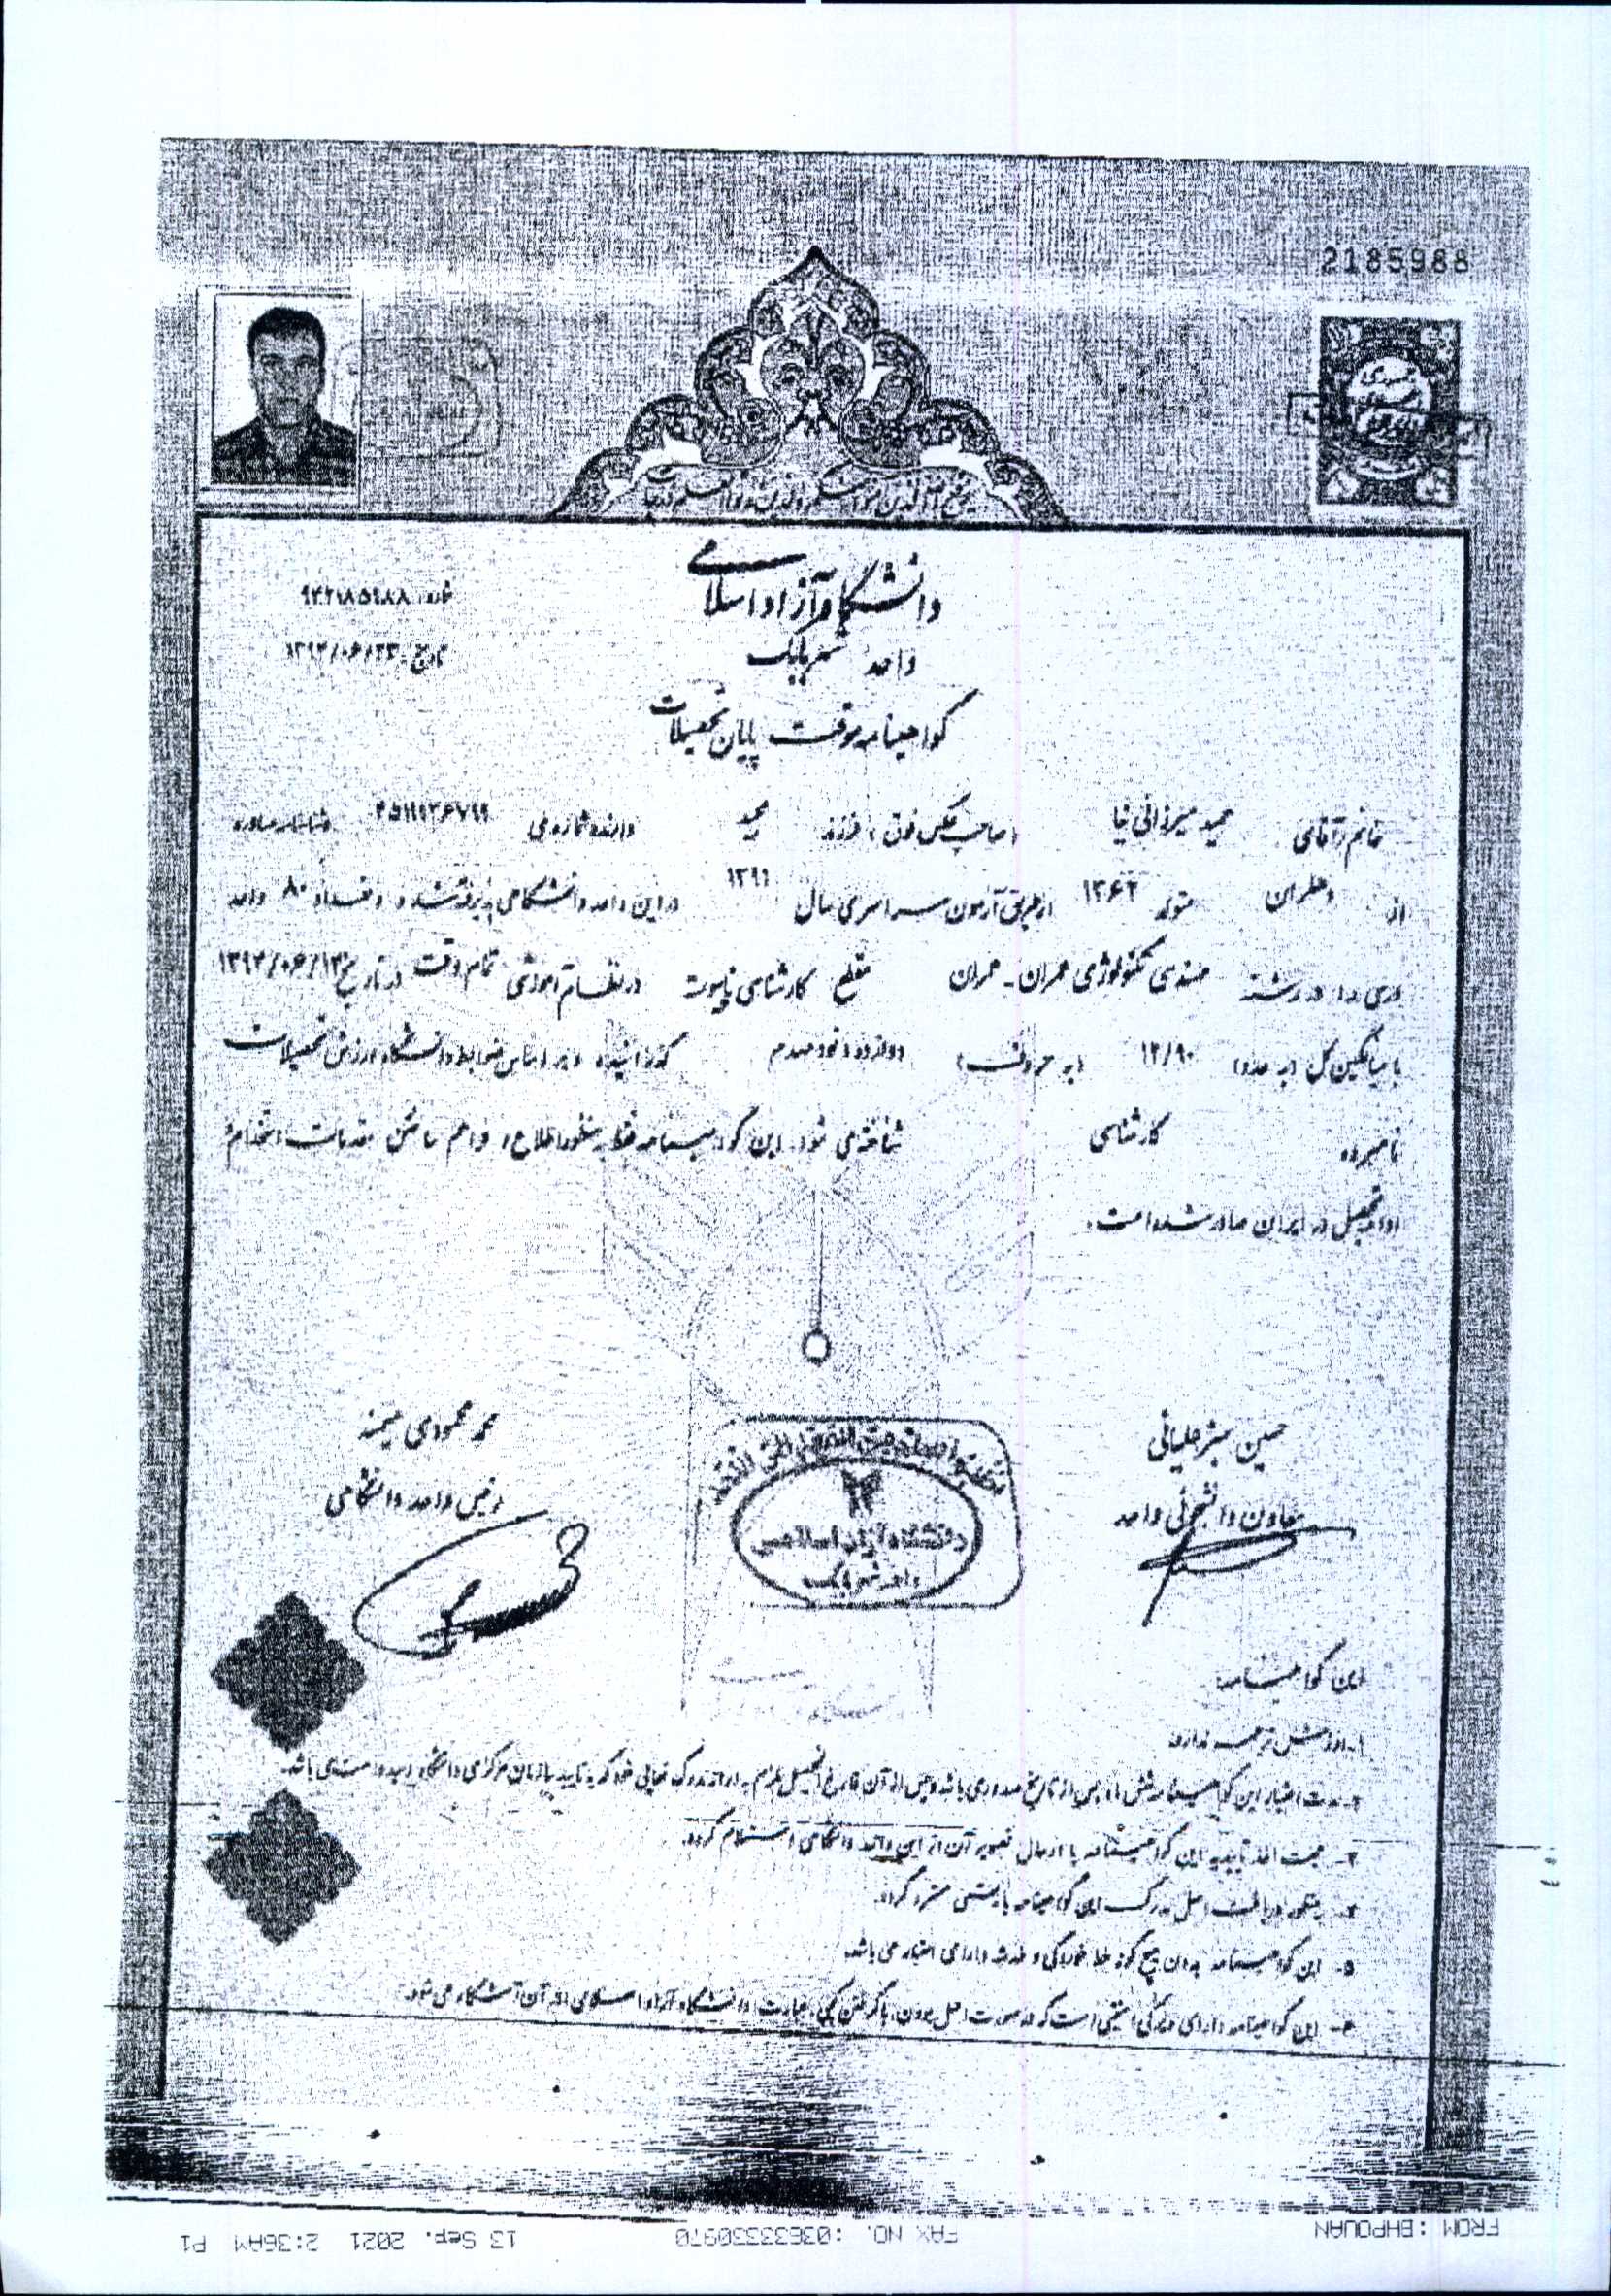 2185988
دانشگاه آزاد اسلامی
شماره: ۹۳۲۱۸۵۹۸۸
واحد شهربابک
تاریخ:
گواهینامه موقت پایان تحصیلات
خانم / آقای حمید میرزائی نیا (صاحب عکس فوق) فرزند مجید دارنده شماره ملی شناسنامه صادره
از دهلران متولد ۱۳۶۲ از طریق آزمون سراسری سال ۱۳۹۱ در این واحد دانشگاهی پذیرفته شده و تعداد ۸۰ واحد
درسی را در رشته مهندسی تکنولوژی عمران - عمران مقطع کارشناسی ناپیوسته در نظام آموزشی تمام وقت در تاریخ
با میانگین کل (به عدد) ۱۲/۹۰ (به حروف) دوازده و نود صدم گذرانیده و بر اساس ضوابط دانشگاه ارزش تحصیلات
نامبرده کارشناسی شناخته می شود. این گواهینامه فقط به منظور اطلاع و فراهم ساختن مقدمات استخدام و
ادامه تحصیل در ایران صادر شده است.
حسین
محمد محمودی میمند
معاون دانشجوئی واحد
رئیس واحد دانشگاهی
دانشگاه آزاد اسلامی
واحد شهربابک
این گواهینامه:
۱- ارزش ترجمه ندارد.
۲- مدت اعتبار این گواهینامه شش ماه پس از تاریخ صدور می باشد و پس از آن فارغ التحصیل ملزم به ارائه مدرک نهائی خود که به تایید سازمان مرکزی دانشگاه رسیده است می باشد.
۳- جهت اخذ تاییدیه این گواهینامه با ارسال تصویر آن از این واحد دانشگاهی استعلام گردد.
۴- بمنظور دریافت اصل مدرک این گواهینامه بایستی مسترد گردد.
۵- این گواهینامه بدون هیچ گونه خط خوردگی و خدشه دارای اعتبار می باشد.
۶- این گواهینامه دارای ویژگی امنیتی است که در صورت اصل بودن، با گرفتن کپی، عبارت دانشگاه آزاد اسلامی در آن آشکار می شود.
FROM : BHPOUAN FAX NO. : 03633330970 13 Sep. 2021 2:36AM P1